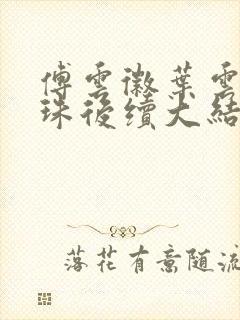 傅雲徽葉雲
珠後續大結
落花有意随流